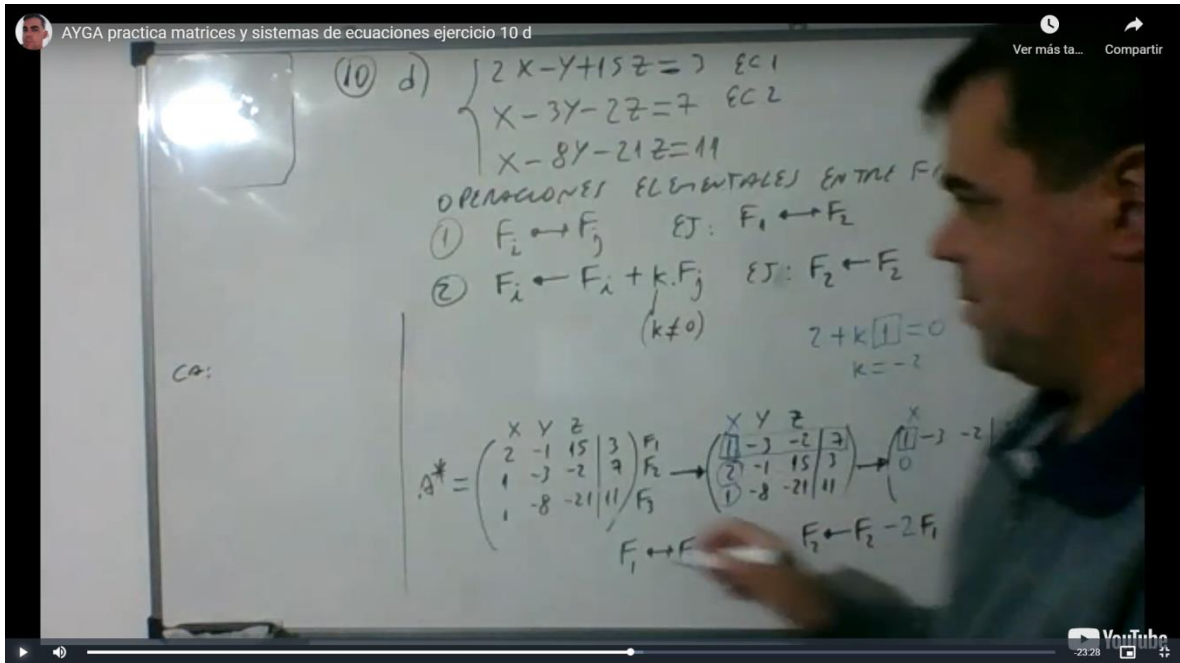 AYGA practica matrices y sistemas de ecuaciones ejercicio 10 d
Ver más ta...
Compartir
10 d) { 2X-Y+15Z=3 EC1
X-3Y-2Z=7 EC2
X-8Y-21Z=11
OPERACIONES ELEMENTALES ENTRE
① Fi ↔ Fj EJ: F1 ↔ F2
② Fi ← Fi + k.Fj EJ: F2 ← F2
(k≠0)
2+k1=0
k=-2
CA:
X Y Z
A* = ( 2 -1 15 | 3 ) F1
1 -3 -2 | 7 F2
1 -8 -21 | 11 F3
→
X Y Z
( 1 -3 -2 | 7
2 -1 15 | 3
1 -8 -21 | 11 )
→
X
( 1 -3 -2 |
0
F1 ↔ F
F2 ← F2 - 2F1
YouTube
-23:28